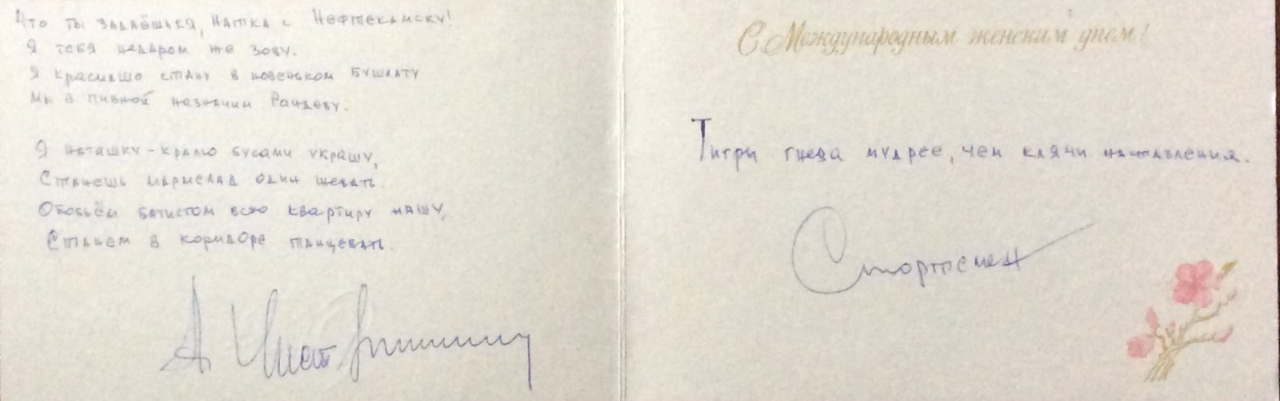 Что ты задаёшься, Натка с Нефтекамску!
Я тебя недаром же зову.
Я красившо стану в новеньком бушлату
Мы в пивной назначим Рандеву.
Я наташку-кралю бусами украшу,
Станешь мармелад один жевать.
Обобьём батистом всю квартиру нашу,
Станем в коридоре танцевать.
А
С Международным женским днем!
Тигры гнева мудрее, чем клячи наставления.
Спортсмен